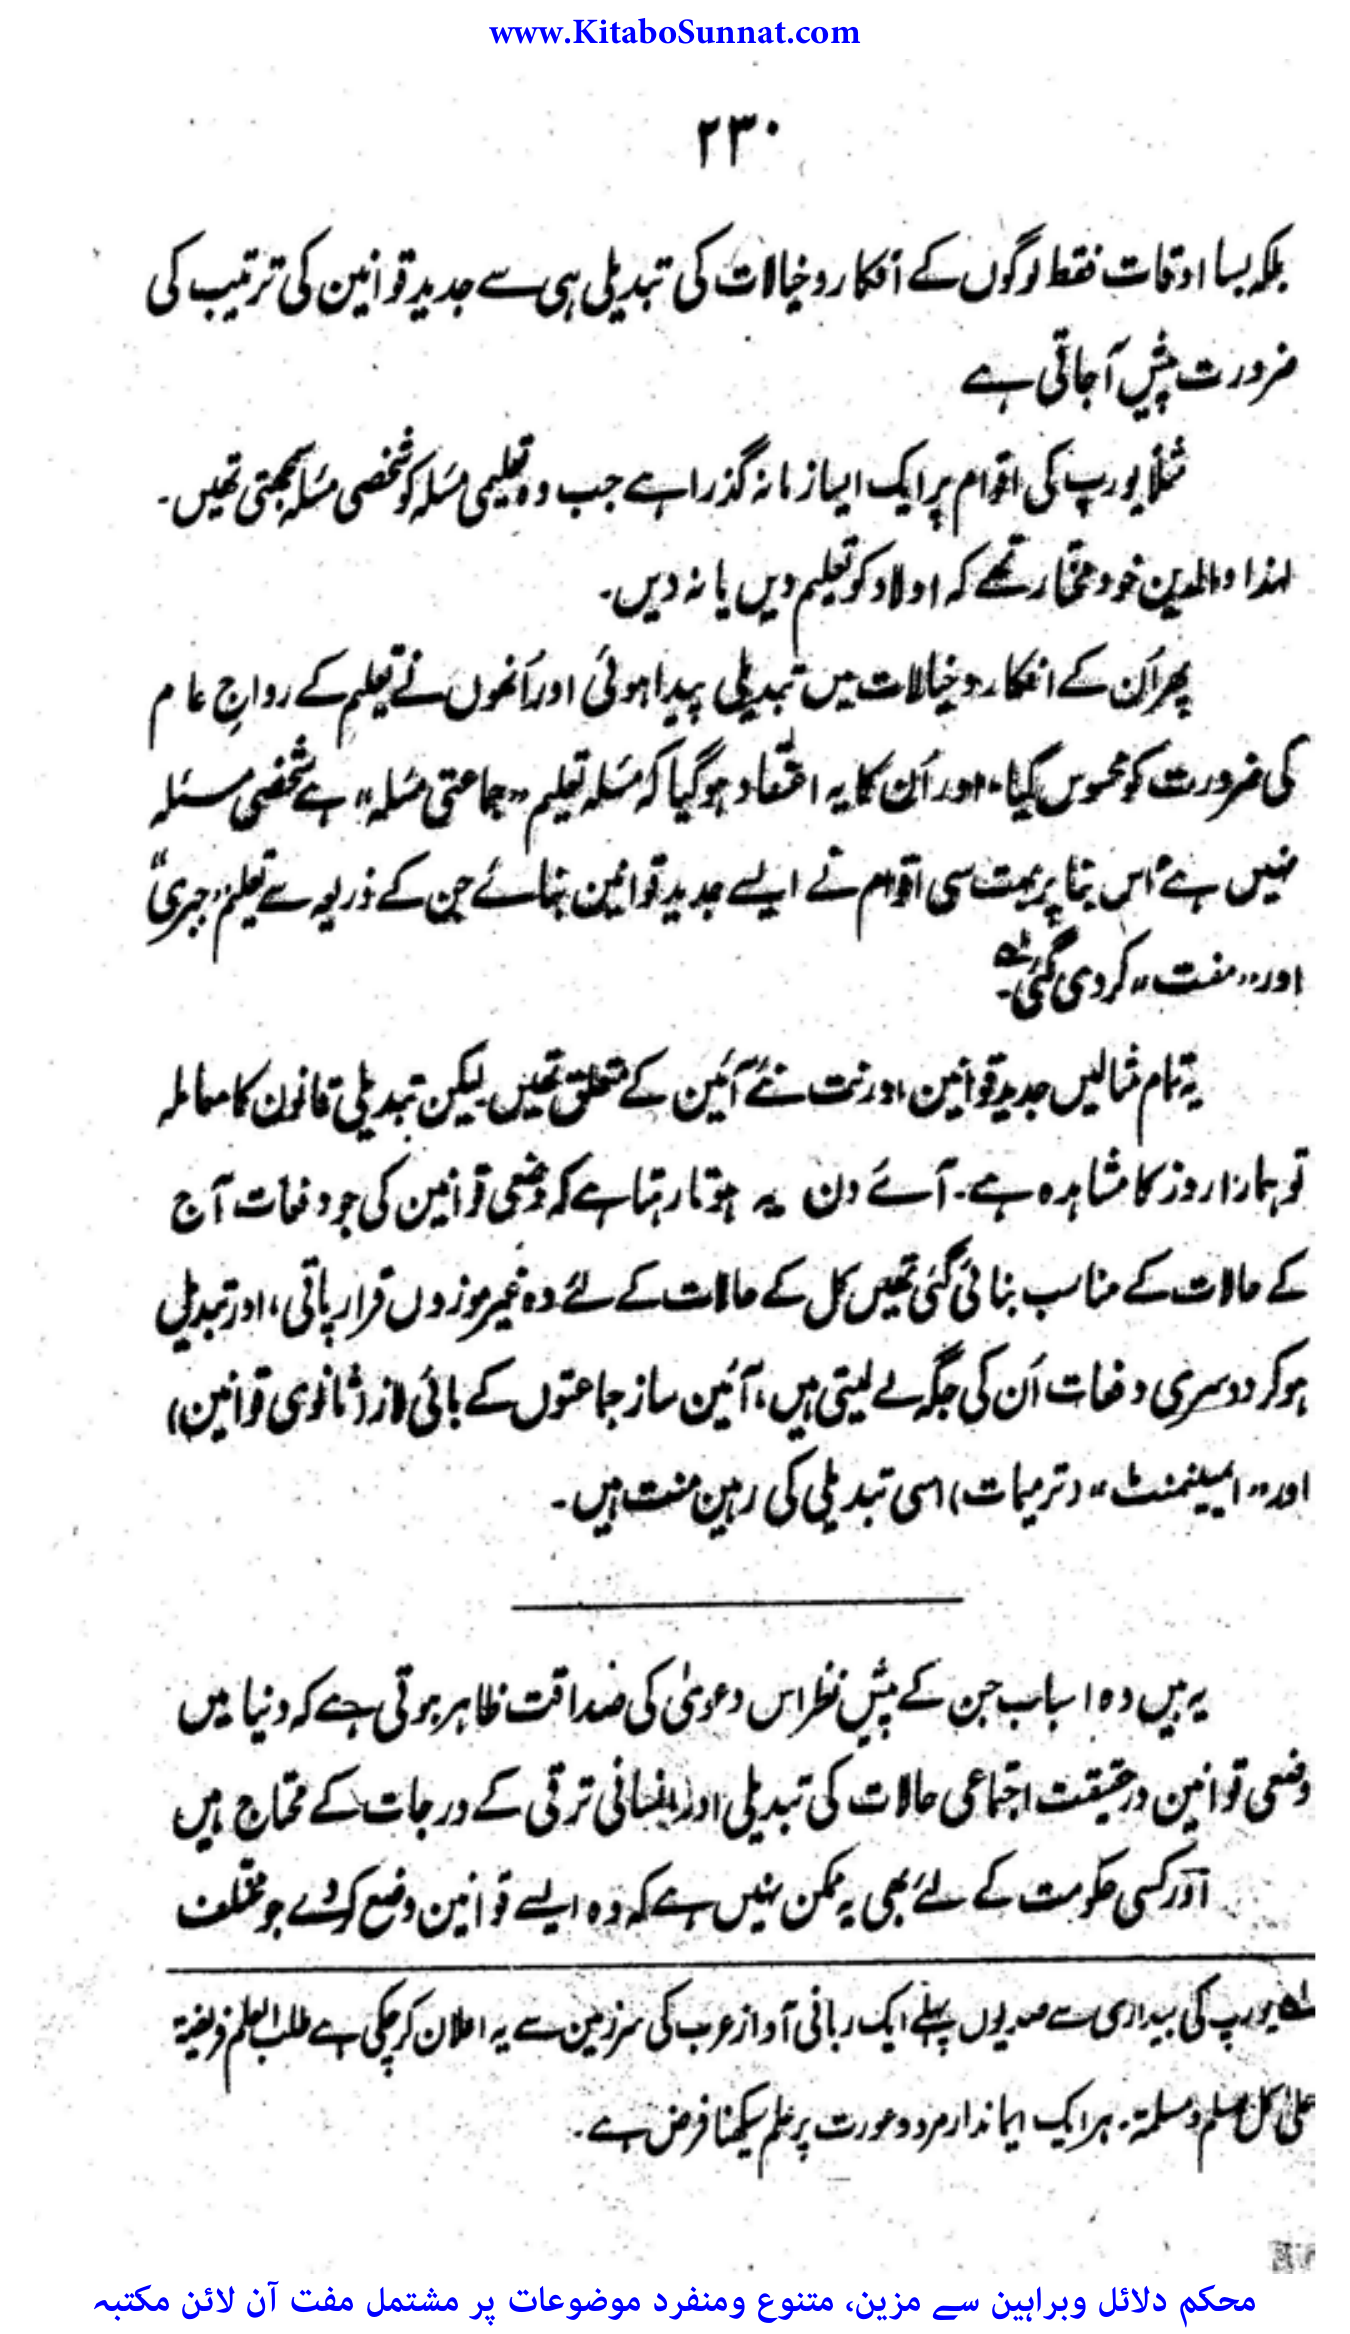 www.KitaboSunnat.com
۲۳۰
بلکہ بسا اوقات فقط لوگوں کے افکار و خیالات کی تبدیلی ہی سے جدید قوانین کی ترتیب کی
ضرورت پیش آجاتی ہے
مثلاً یورپ کی اقوام پر ایک ایسا زمانہ گذرا ہے جب وہ تعلیمی مسٔلہ کو شخصی مسٔلہ سمجھتی تھیں۔
لہذا والدین خود مختار تھے کہ اولاد کو تعلیم دیں یا نہ دیں۔
پھر اُن کے افکار و خیالات میں تبدیلی پیدا ہوئی اور اُنھوں نے تعلیم کے رواجِ عام
کی ضرورت کو محسوس کیا، اور اُن کا یہ اعتقاد ہوگیا کہ مسٔلہ تعلیم "جماعتی مسٔلہ" ہے شخصی مسئلہ
نہیں ہے اس بنا پر بہت سی اقوام نے ایسے جدید قوانین بنائے جن کے ذریعہ سے تعلیم "جبری"
اور "مفت" کر دی گئی۔ لہ
یہ تمام مثالیں جدید قوانین اور نت نئے آئین کے متعلق تھیں لیکن تبدیلی قانون کا معاملہ
تو ہمارا روز کا مشاہدہ ہے۔ آئے دن یہ ہوتا رہتا ہے کہ وضعی قوانین کی جو دفعات آج
کے حالات کے مناسب بنائی گئی تھیں کل کے حالات کے لئے وہ غیر موزوں قرار پاتی، اور تبدیل
ہوکر دوسری دفعات اُن کی جگہ لے لیتی ہیں، آئین ساز جماعتوں کے بائی لاز (ثانوی قوانین)
اور "ایمینمنٹ" (ترمیمات) اسی تبدیلی کی رہین منت ہیں۔
یہ ہیں وہ اسباب جن کے پیش نظر اس دعویٰ کی صداقت ظاہر ہوتی ہے کہ دنیا میں
وضعی قوانین درحقیقت اجتماعی حالات کی تبدیلی اور انسانی ترقی کے درجات کے محتاج ہیں
اور کسی حکومت کے لئے بھی یہ ممکن نہیں ہے کہ وہ ایسے قوانین وضع کر دے جو مختلف
لہ یورپ کی بیداری سے صدیوں پہلے ایک ربانی آواز عرب کی سرزمین سے یہ اعلان کر چکی ہے طلب العلم فریضۃ
علیٰ کل مسلم و مسلمۃ۔ ہر ایک ایماندار مرد و عورت پر علم سیکھنا فرض ہے۔
محکم دلائل وبراہین سے مزین، متنوع ومنفرد موضوعات پر مشتمل مفت آن لائن مکتبہ